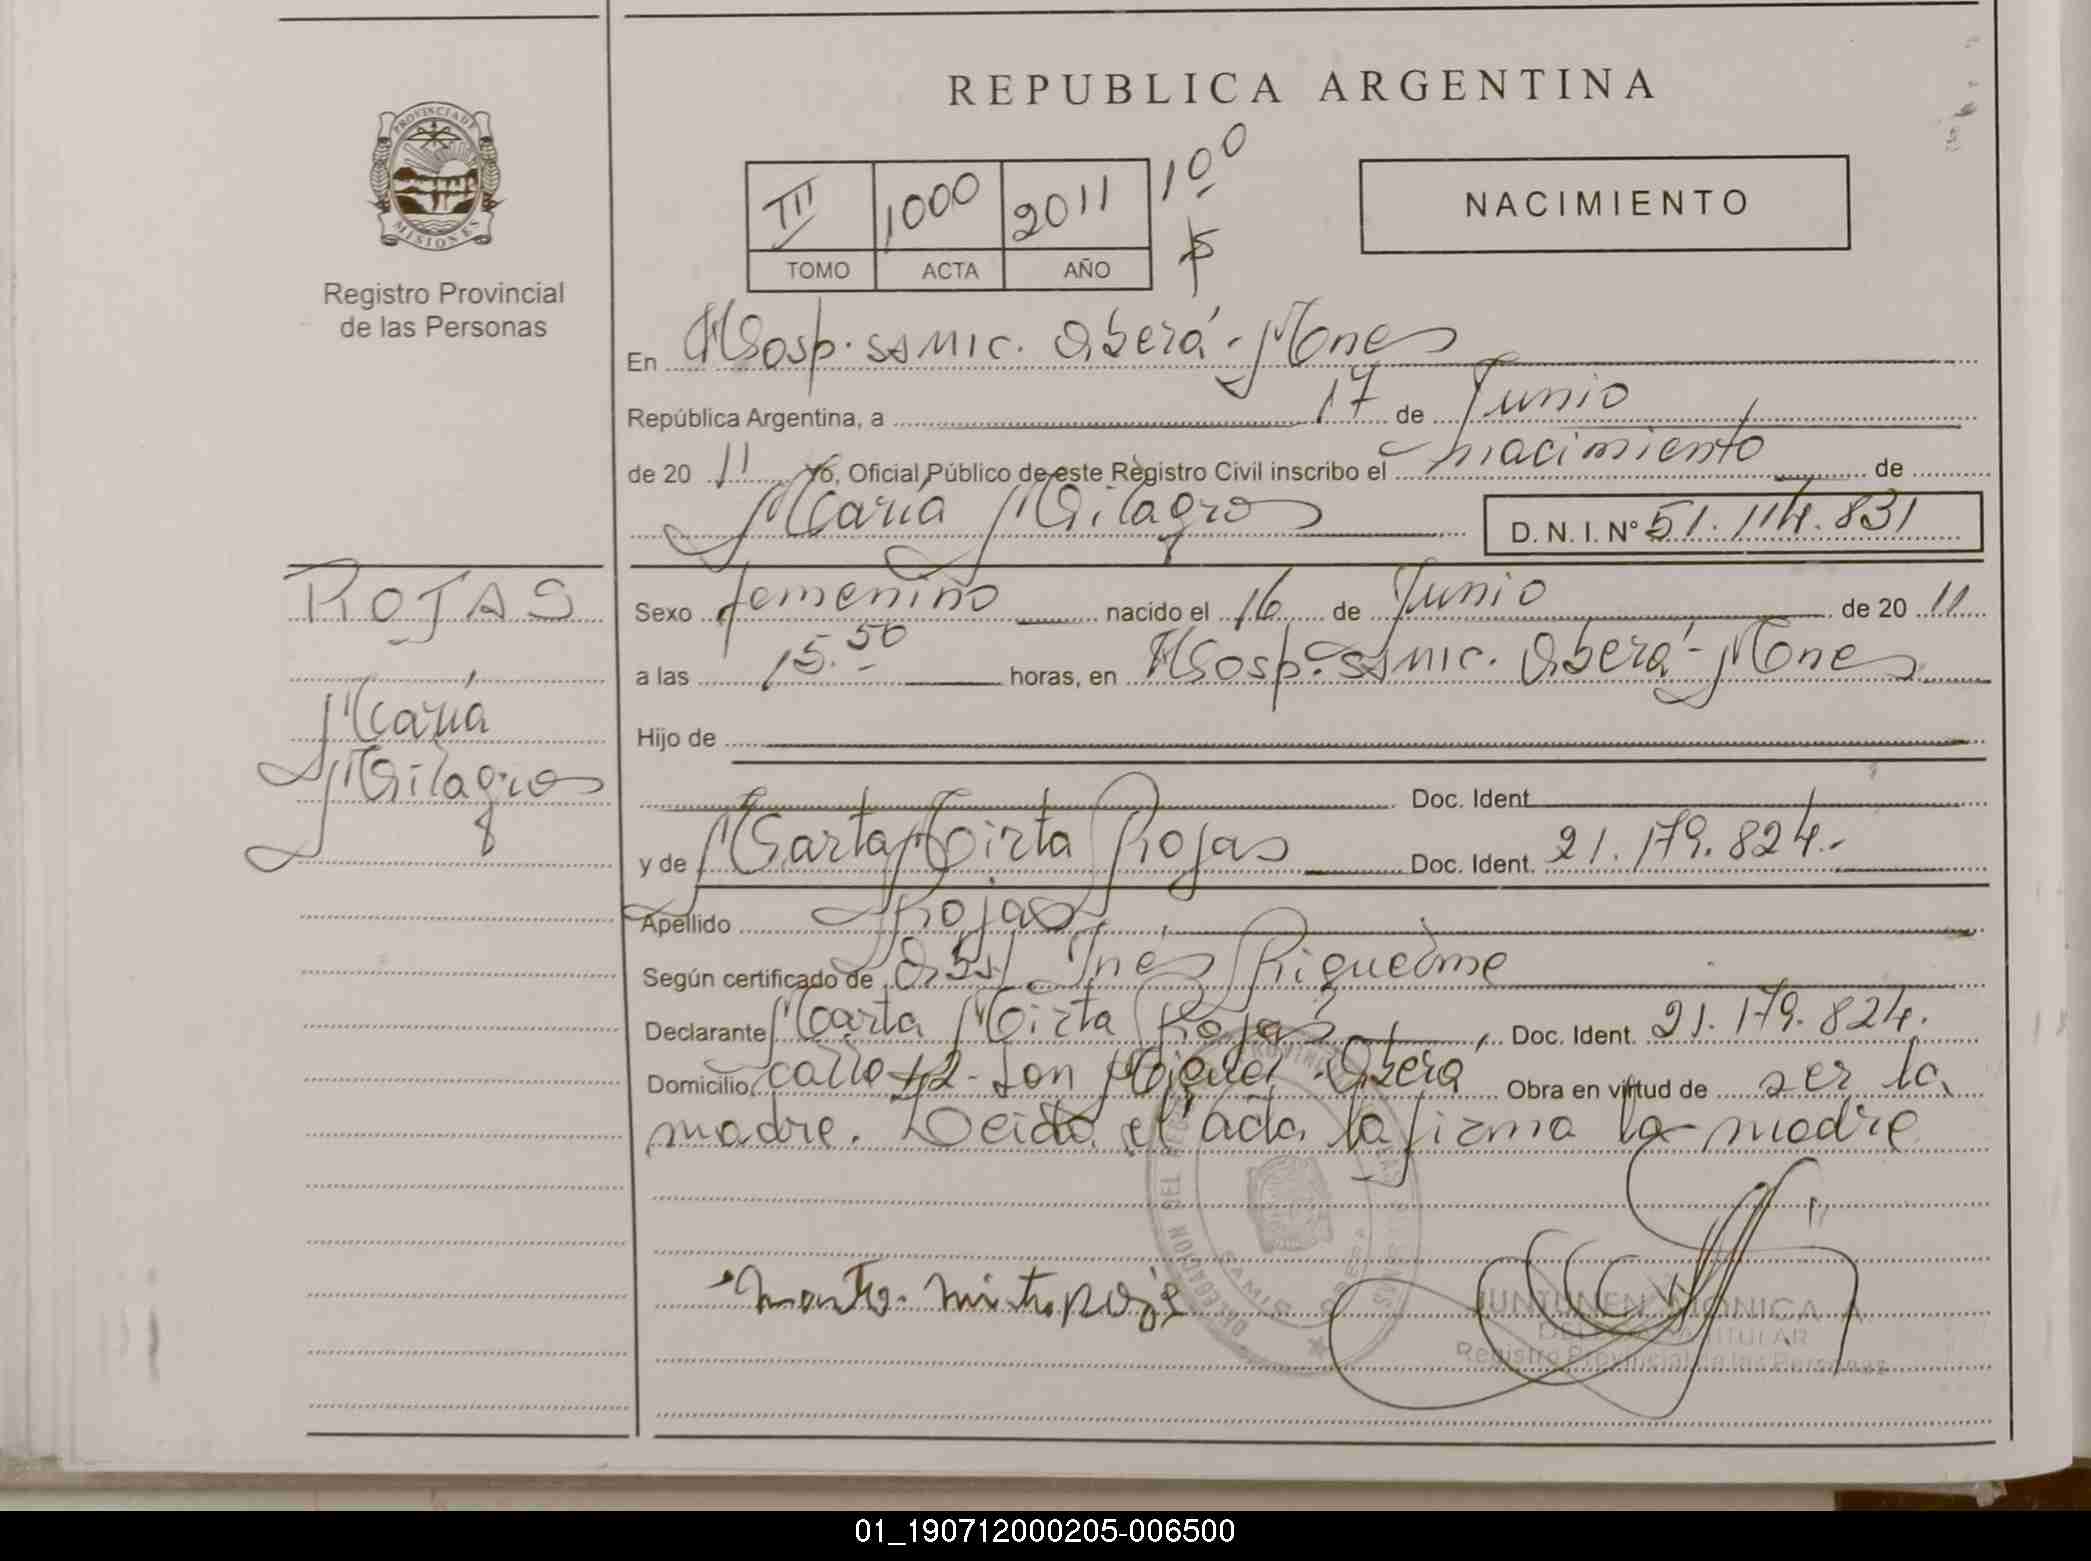 REPUBLICA ARGENTINA
PROVINCIA DE
MISIONES
Registro Provincial
de las Personas
III 1000 2011 10º
TOMO ACTA AÑO
NACIMIENTO
En Hosp. SSMIC. Oberá - Mnes
República Argentina, a 17 de Junio
de 20 11 Yo, Oficial Público de este Registro Civil inscribo el nacimiento de
María Milagros D. N. I. Nº 51.114.831
ROJAS
María
Milagros
Sexo femenino nacido el 16 de Junio de 20 11
a las 15.50 horas, en Hosp. SSMIC. Oberá - Mnes
Hijo de
Doc. Ident.
y de Marta Mirta Rojas Doc. Ident. 21.179.824.-
Apellido Rojas
Según certificado de Obst. Inés Riquelme
Declarante Marta Mirta Rojas, Doc. Ident. 21.179.824.
Domicilio calle 42 - San Miguel - Oberá Obra en virtud de ser la
madre. Leida el acta la firma la madre
DELEGACION DEL
SAMIC OBERA
JUNTUNEN MONICA A.
DELEGADA TITULAR
Registro Provincial de las Personas
01_190712000205-006500